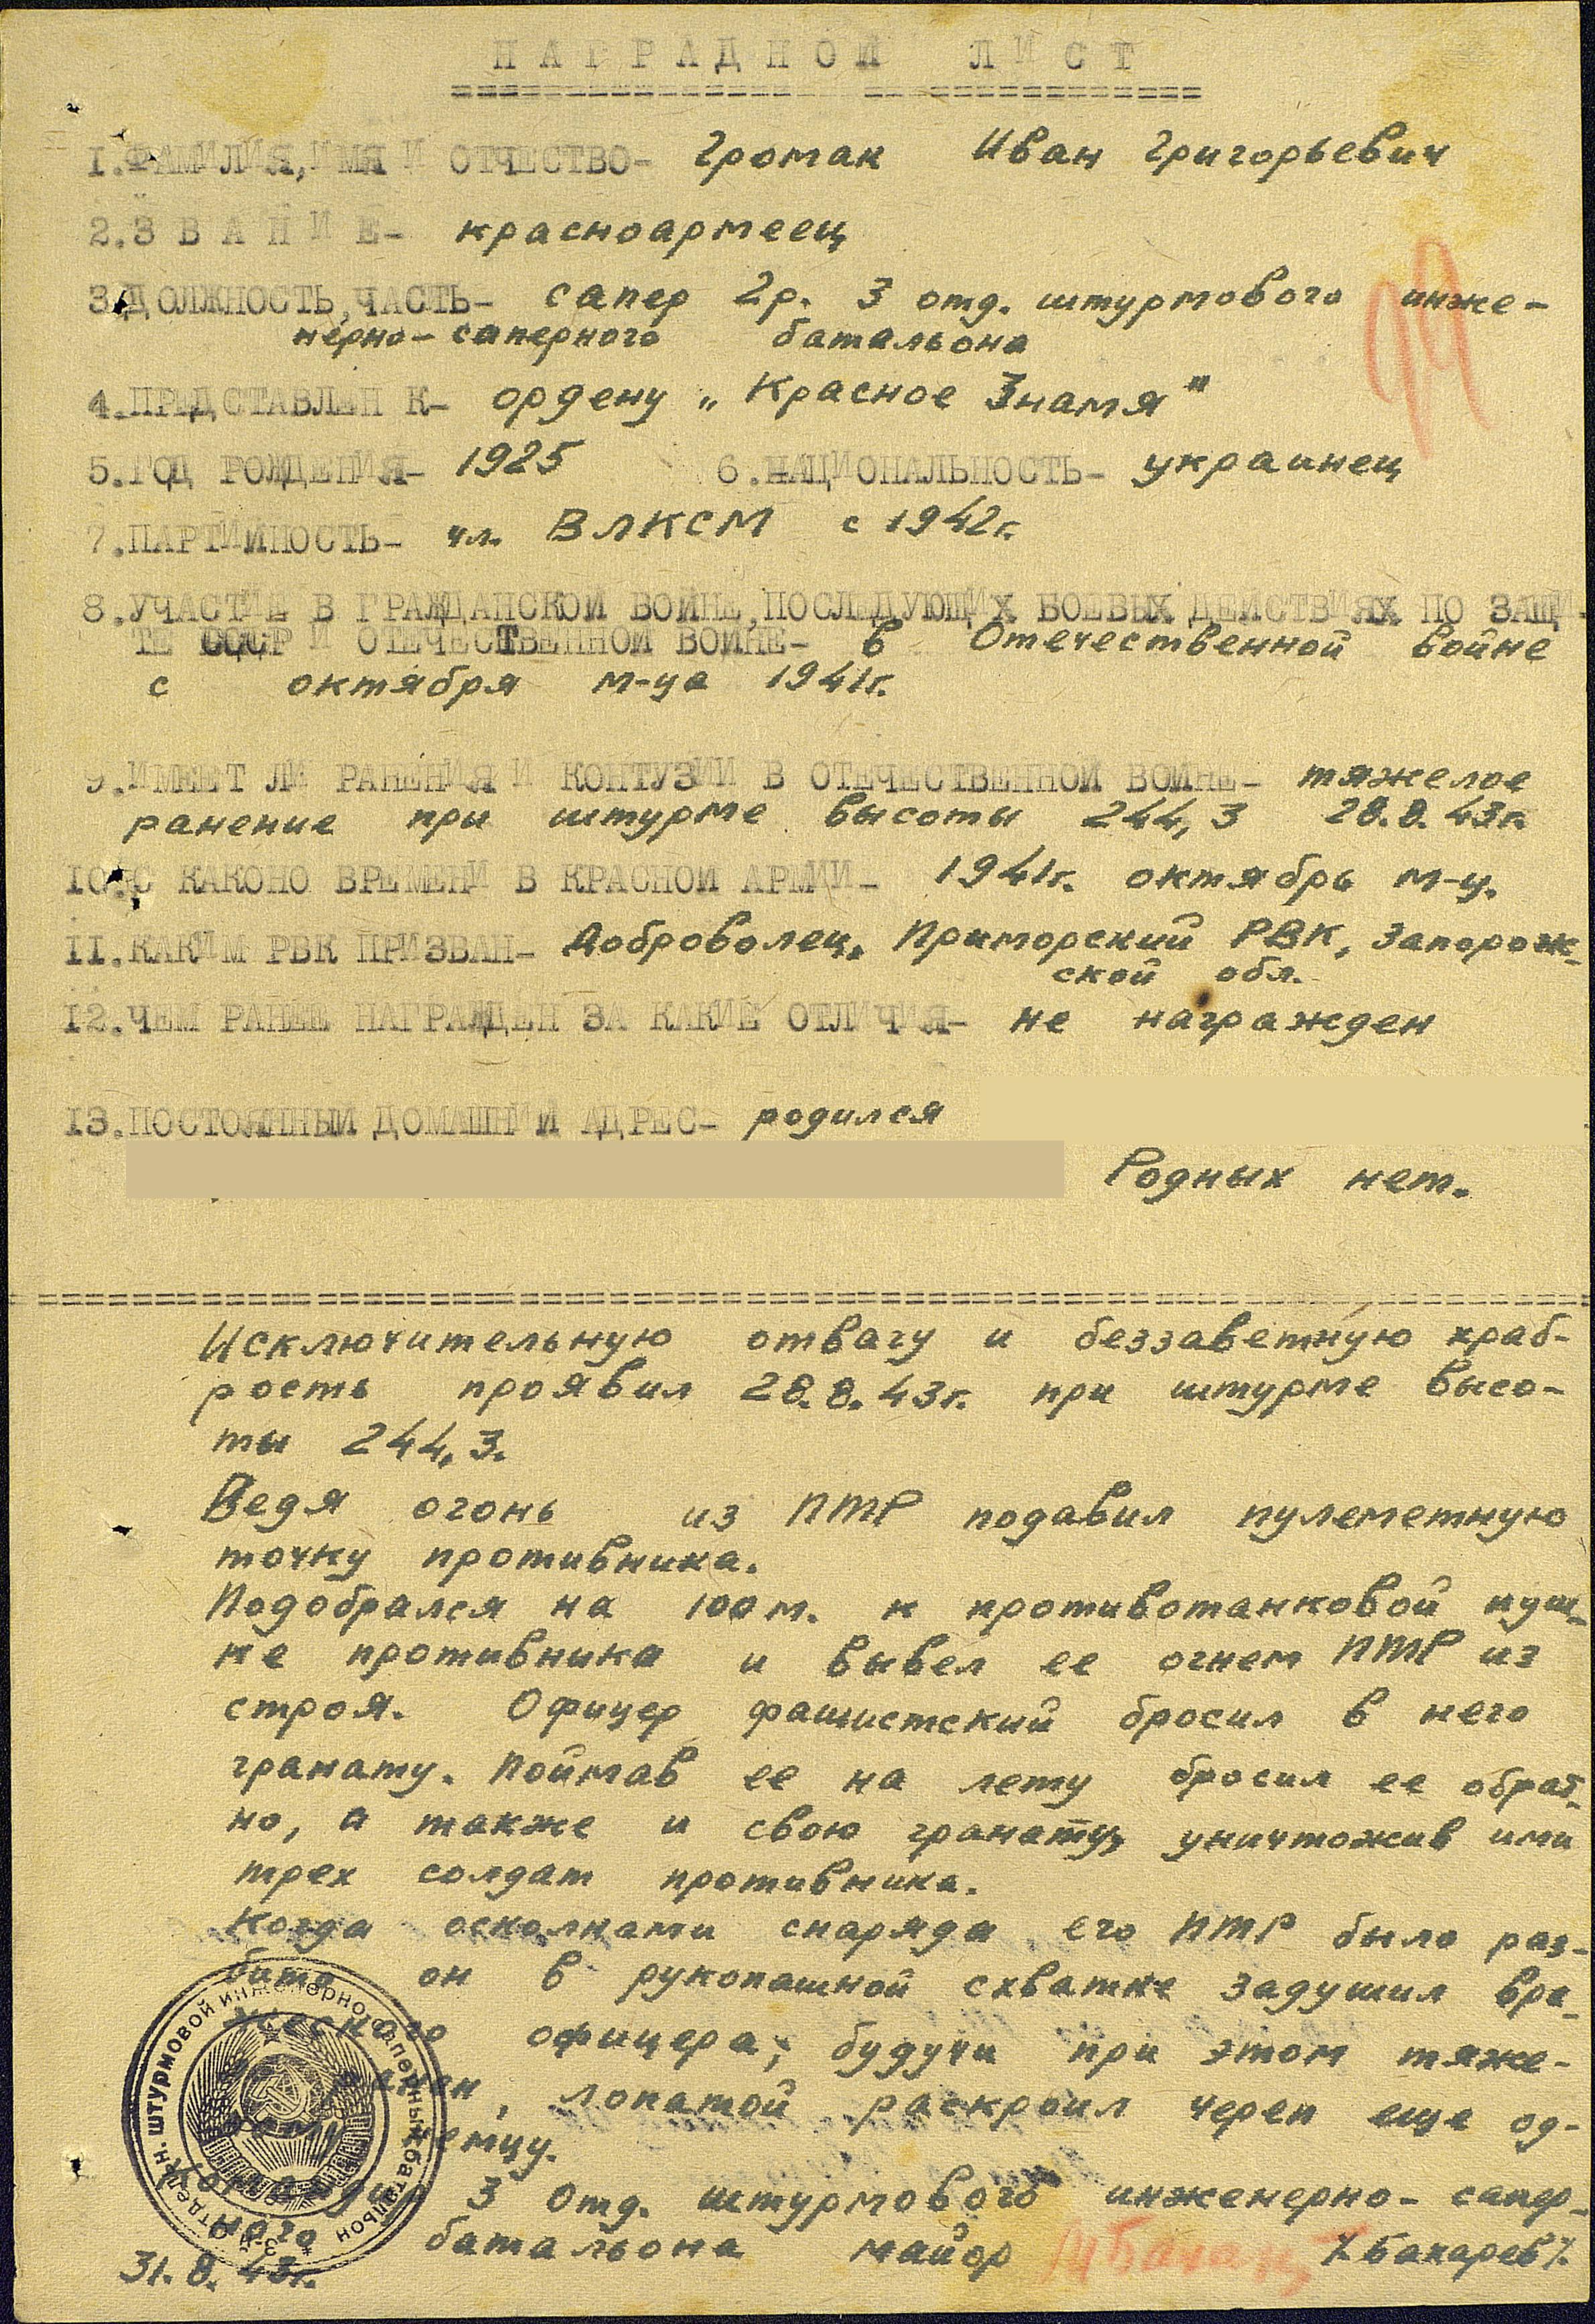 НАГРАДНОЙ ЛИСТ
1.ФАМИЛИЯ, ИМЯ И ОТЧЕСТВО- Громак Иван Григорьевич
2.ЗВАНИЕ- красноармеец
3.ДОЛЖНОСТЬ, ЧАСТЬ- сапер 2р. 3 отд. штурмового инже-
нерно-саперного батальона
4.ПРЕДСТАВЛЕН К- ордену „Красное Знамя"
5.ГОД РОЖДЕНИЯ- 1925 6.НАЦИОНАЛЬНОСТЬ- украинец
7.ПАРТИЙНОСТЬ- чл. ВЛКСМ с 1942г.
8.УЧАСТИЕ В ГРАЖДАНСКОЙ ВОЙНЕ, ПОСЛЕДУЮЩИХ БОЕВЫХ ДЕЙСТВИЯХ ПО ЗАЩИ-
ТЕ СССР И ОТЕЧЕСТВЕННОЙ ВОЙНЕ- в Отечественной войне
с октября м-ца 1941г.
9.ИМЕЕТ ЛИ РАНЕНИЯ И КОНТУЗИИ В ОТЕЧЕСТВЕННОЙ ВОЙНЕ- тяжелое
ранение при штурме высоты 244,3 28.8.43г.
10.С КАКОНО ВРЕМЕНИ В КРАСНОЙ АРМИИ- 1941г. октябрь м-ц.
11.КАКИМ РВК ПРИЗВАН- Доброволец, Приморский РВК, Запорож-
ской обл.
12.ЧЕМ РАНЕЕ НАГРАЖДЕН ЗА КАКИЕ ОТЛИЧИЯ- не награжден
13.ПОСТОЯННЫЙ ДОМАШНИЙ АДРЕС- родился
Родных нет.
Исключительную отвагу и беззаветную храб-
рость проявил 28.8.43г. при штурме высо-
ты 244,3.
Ведя огонь из ПТР подавил пулеметную
точку противника.
Подобрался на 100м. к противотанковой пуш-
ке противника и вывел ее огнем ПТР из
строя. Офицер фашистский бросил в него
гранату. Поймав ее на лету бросил ее обрат-
но, а также и свою гранату, уничтожив ими
трех солдат противника.
Когда осколками снаряда его ПТР было раз-
бито он в рукопашной схватке задушил вра-
жеского офицера; будучи при этом тяже-
ранен, лопатой раскроил череп еще од-
ному немцу.
Командир 3 отд. штурмового инженерно-сапер-
ного батальона майор /Бахарев/.
31.8.43г.
99
Отдельн. штурмовой инженерно-саперный батальон